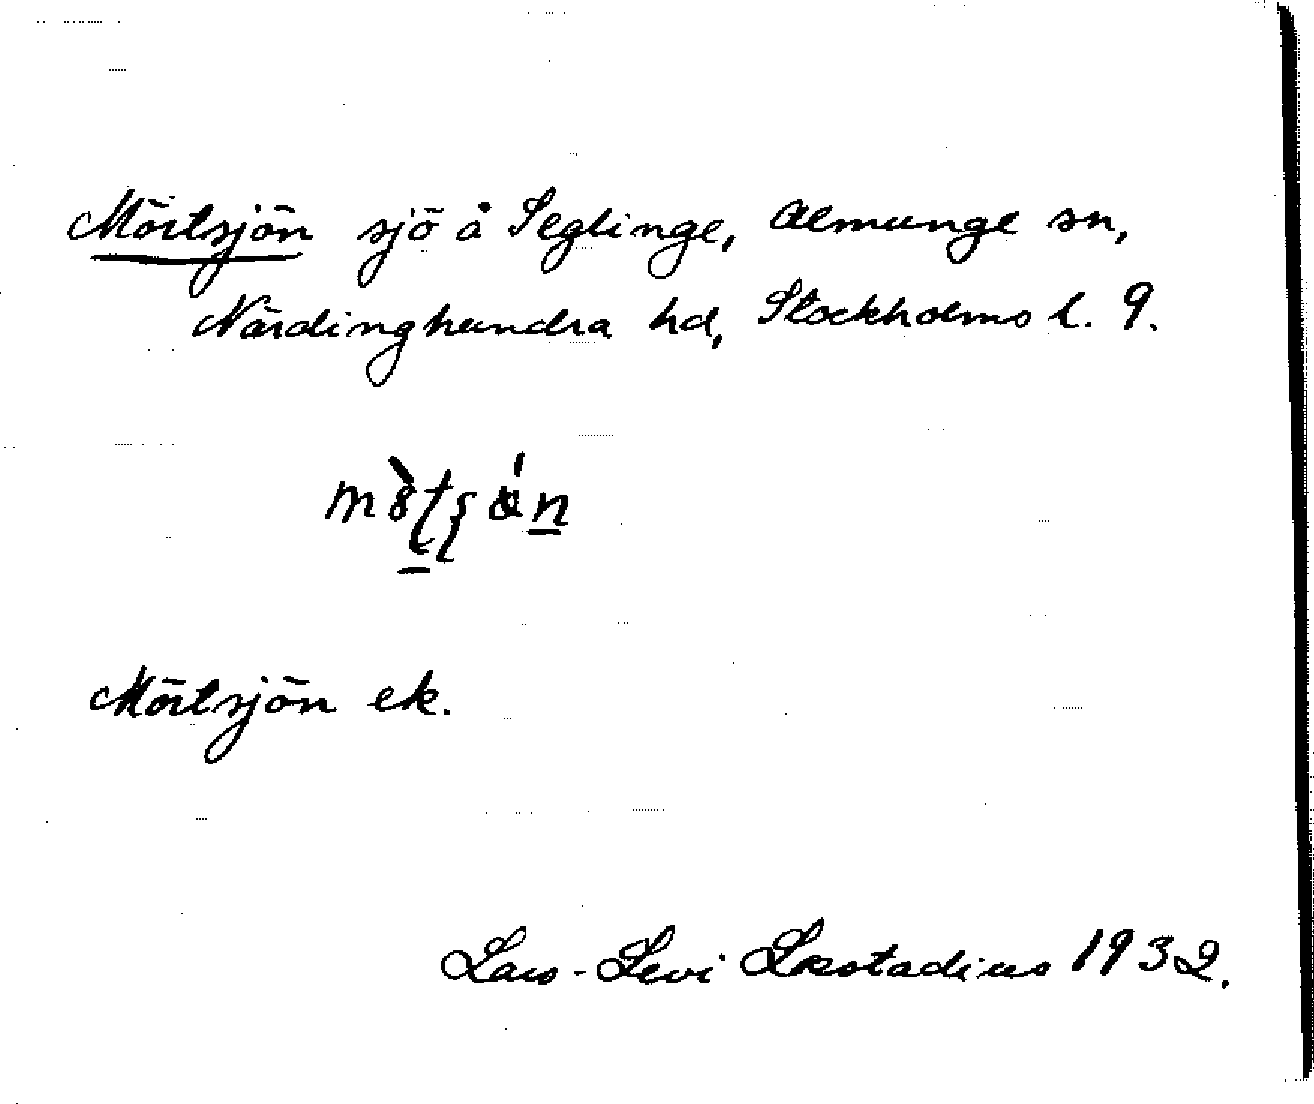 Mörtsjön sjö å Seglinge, Almunge sn,
Närdinghundra hd, Stockholms l. 9.
Mörtsjön ek.
Lars-Levi Læstadius 1932.